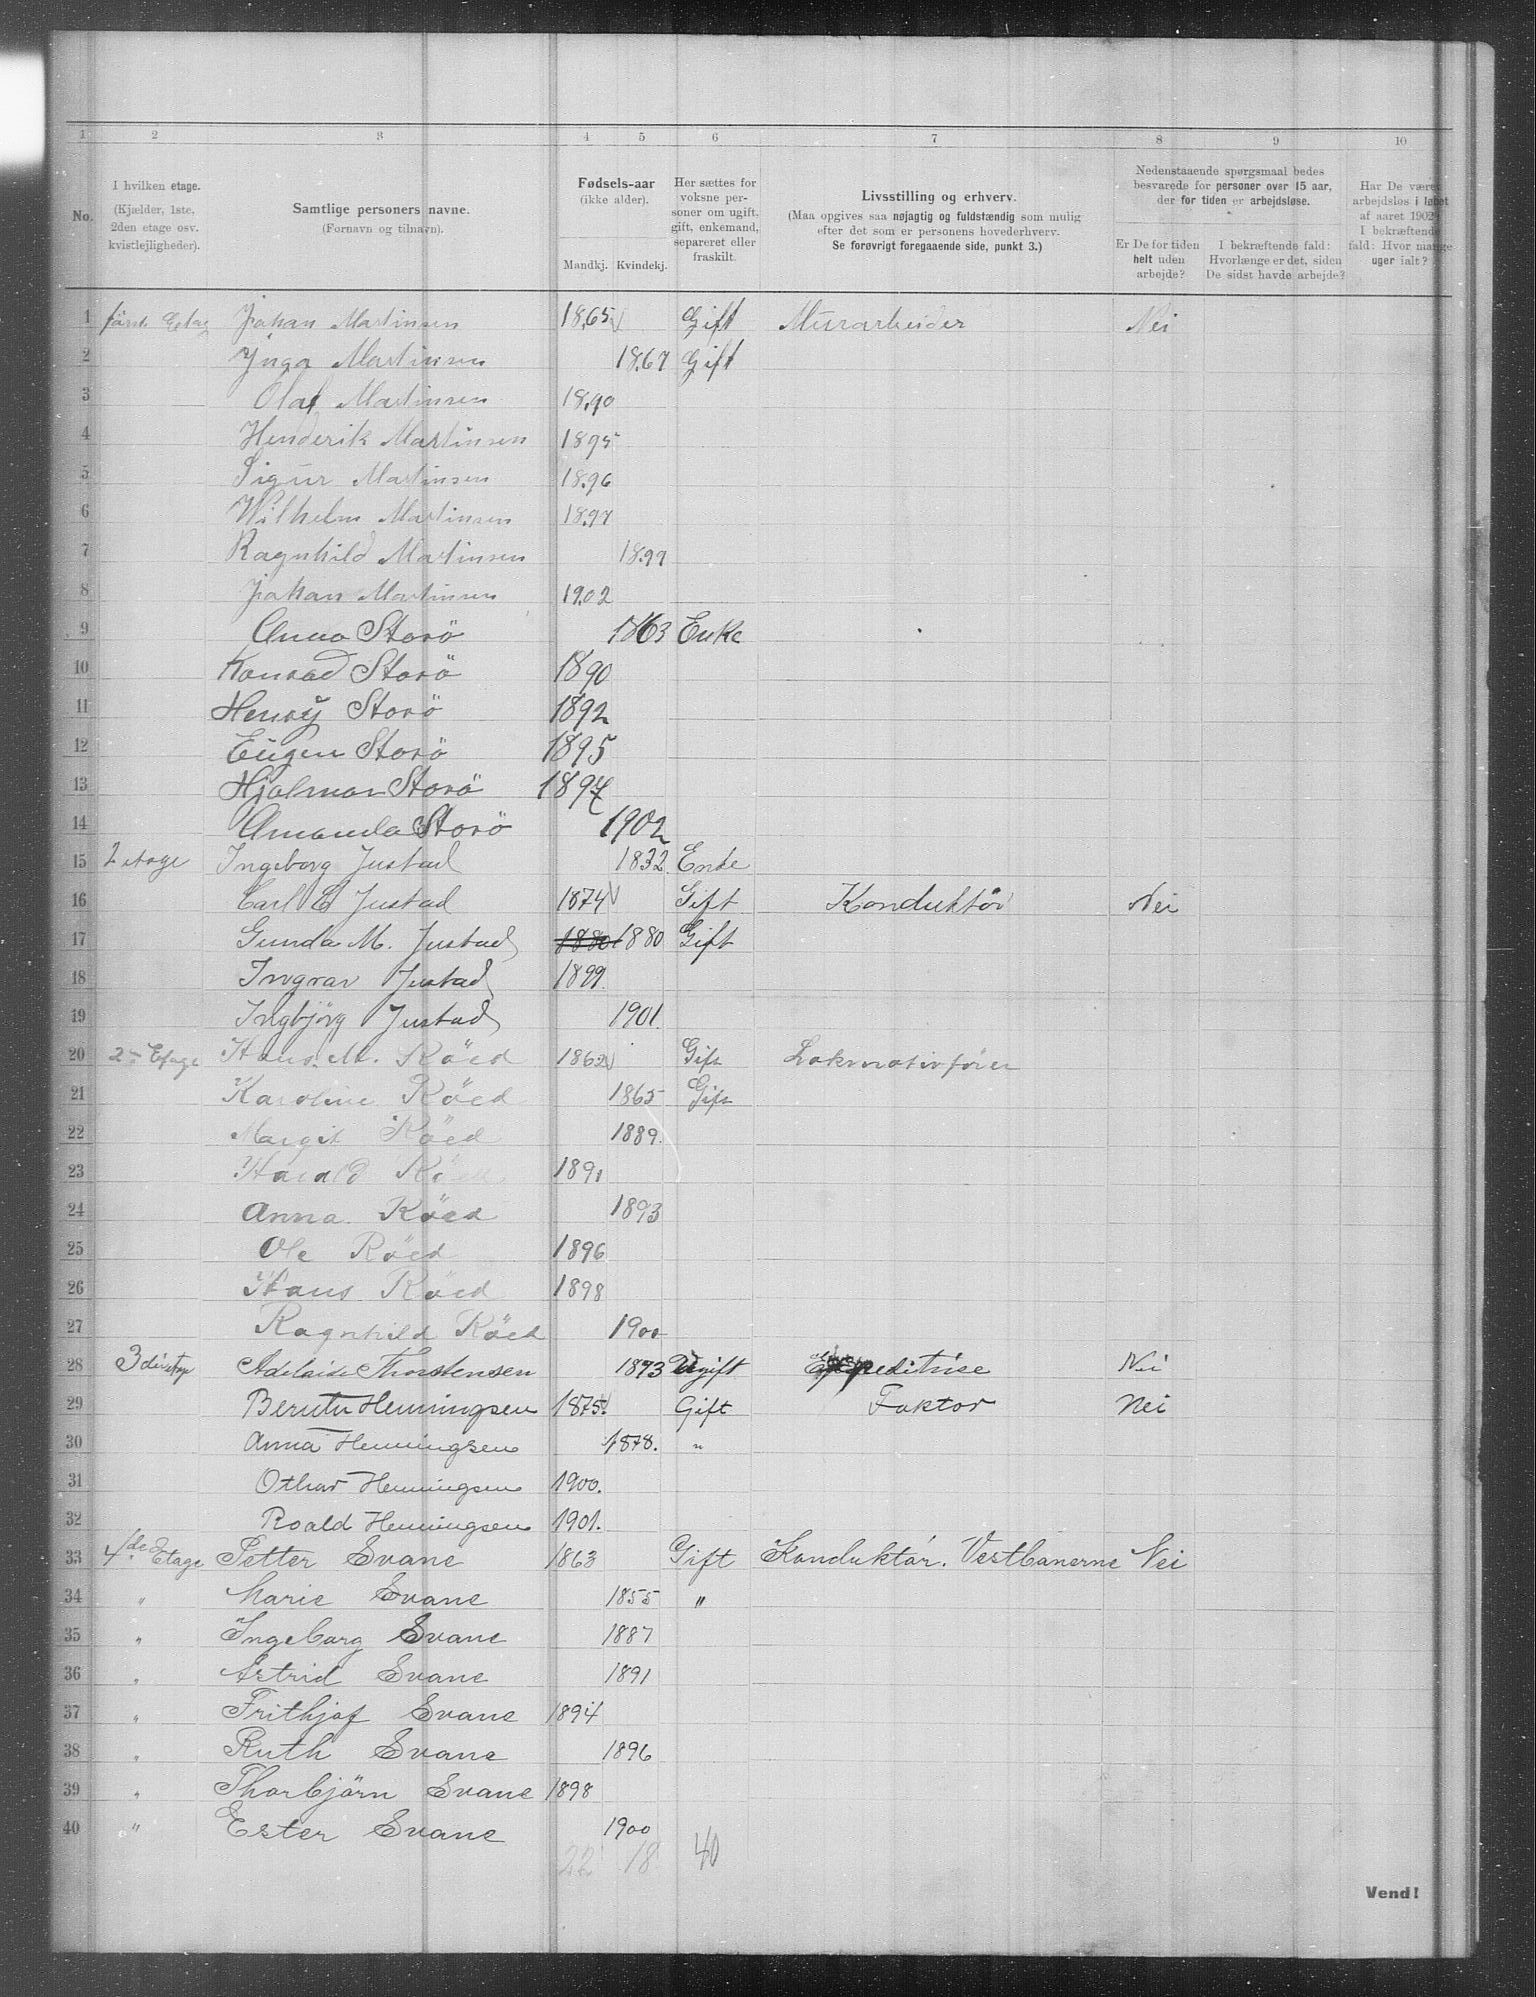 1 2 3 4 5 6 7 8 9 10
No.
I hvilken etage.
(Kjælder, 1ste,
2den etage osv.
kvistlejligheder).
Samtlige personers navne.
(Fornavn og tilnavn).
Fødsels-aar
(ikke alder).
Mandkj. Kvindekj.
Her sættes for
voksne per-
soner om ugift,
gift, enkemand,
separeret eller
fraskilt.
Livsstilling og erhverv.
(Maa opgives saa nøjagtig og fuldstændig som mulig
efter det som er personens hovederhverv.
Se forøvrigt foregaaende side, punkt 3.)
Nedenstaaende spørgsmaal bedes
besvarede for personer over 15 aar,
der for tiden er arbejdsløse.
Er De for tiden
helt uden
arbejde?
I bekræftende fald:
Hvorlænge er det, siden
De sidst havde arbejde?
Har De været
arbejdsløs i løbet
af aaret 1902?
I bekræftende
fald: Hvor mange
uger ialt?
1 Johan Martinsen 1865 Gift Murarbeider Nei
2 Inga Martinsen 1867 Gift
3 Olaf Martinsen 1890
4 Henderik Martinsen 1895
5 Sigur Martinsen 1896
6 Wilhelm Martinsen 1897
7 Ragnhild Martinsen 1899
8 Johan Martinsen 1902
9 Anna Storö 1863 Enke
10 Konrad Storö 1890
11 Henry Storö 1892
12 Eugen Storö 1895
13 Hjalmar Storö 1897
14 Amanda Storö 1902
15 2 etage Ingeborg Justad 1832 Enke
16 Carl E Justad 1874 Gift Konduktör Nei
17 Gunda M. Justad 1880 1880 Gift
18 Ingvar Justad 1899.
19 Ingbjörg Justad 1901.
20 2- Etage Hans. M. Röed 1862 Gift Lokomotivförer
21 Karoline Röed 1865 Gift
22 Margit Röed 1889.
23 Harald Röed 1891
24 Anna Röed 1893
25 Ole Röed 1896
26 Hans Röed 1898
27 Ragnhild Röed 1900
28 3die etage Adelaide Thorstensen 1873 Ugift Expeditrise Nei
29 Berntu Henningsen 1875. Gift Faktor Nei
30 Anna Henningsen 1878. "
31 Othar Henningsen 1900.
32 Roald Henningsen 1901.
33 4de Etage Petter Svane 1863 Gift Konduktör. Vestbanerne Nei
34 " Marie Svane 1855 "
35 " Ingeborg Svane 1887
36 " Astrid Svane 1891
37 " Frithjof Svane 1894
38 " Ruth Svane 1896
39 " Thorbjörn Svane 1898
40 " Ester Svane 1900
22 18 40
Vend!